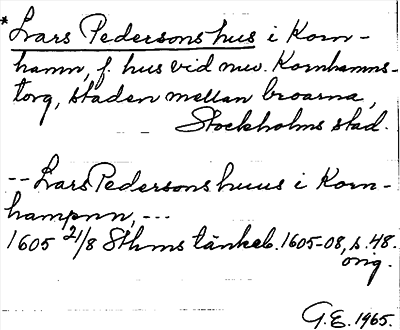 *Lars Pedersons hus i Korn-
hamn, f. hus vid nuv. Kornhamns-
torg, staden mellan broarna,
Stockholms stad.
-- Lars Pedersons huus i Korn-
hampnn, ---
1605 21/8 Sthms tänkeb. 1605-08, s. 48.
orig.
G.E. 1965.